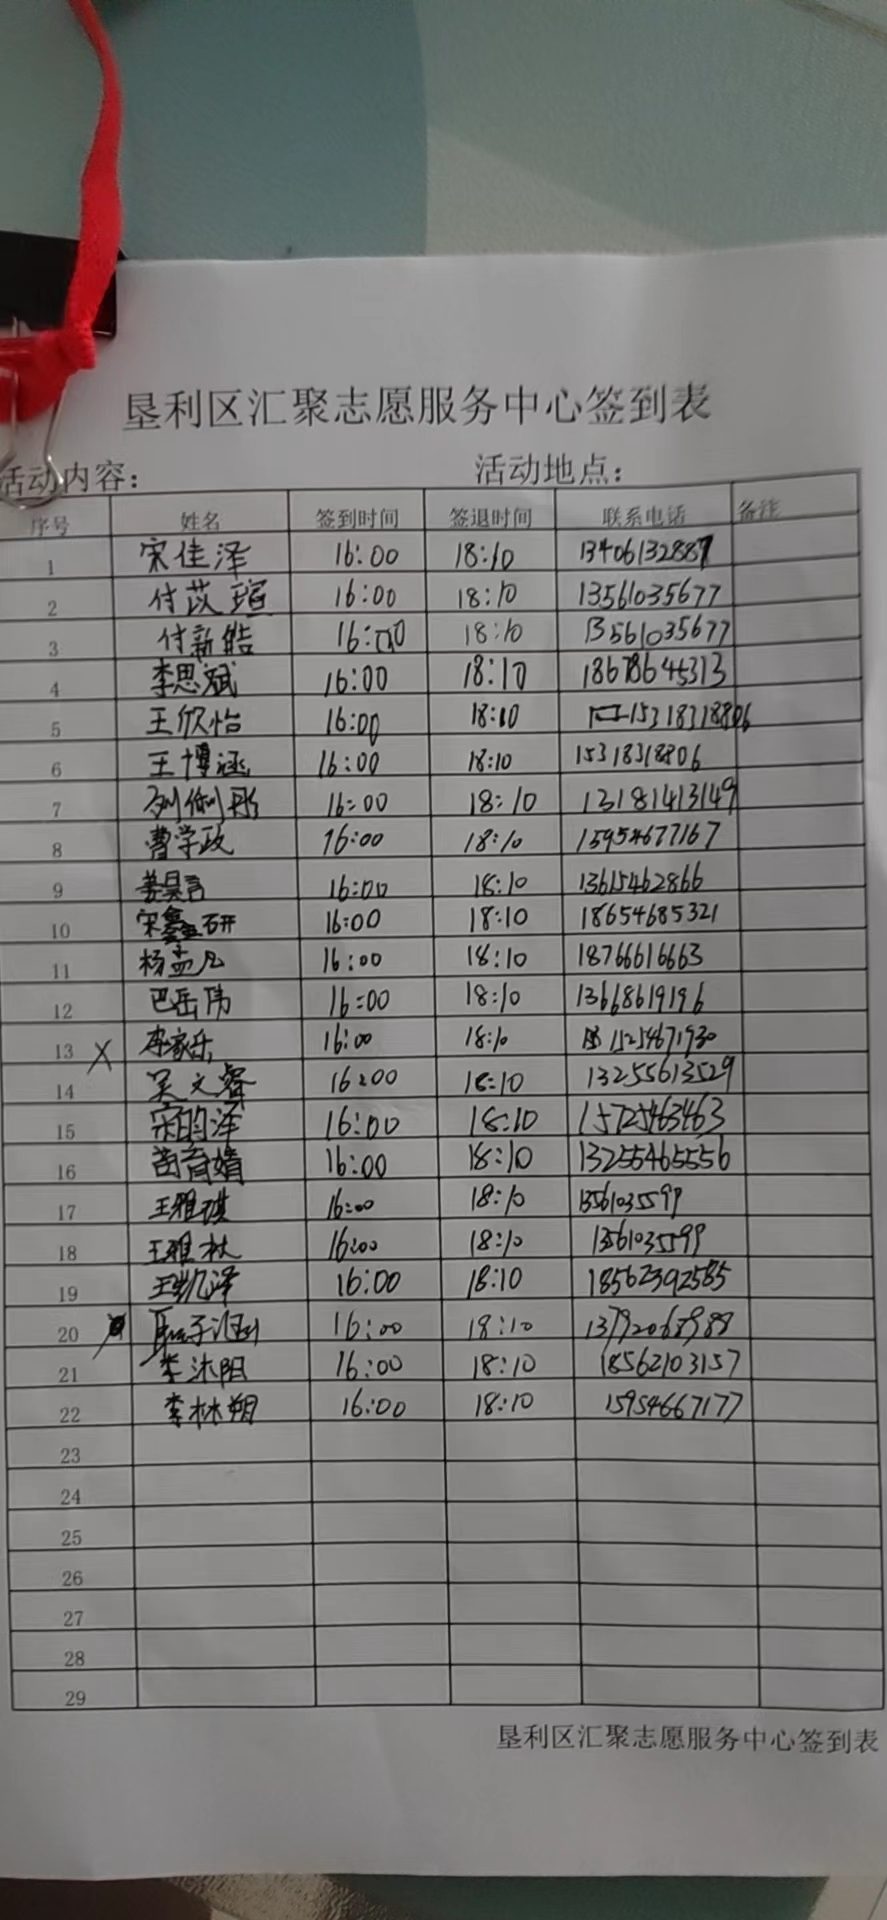 垦利区汇聚志愿服务中心签到表
活动内容： 活动地点：
序号 姓名 签到时间 签退时间 联系电话 备注
1 宋佳泽 16:00 18:10 13406132887
2 付苡瑄 16:00 18:10 13561035677
3 付新皓 16:00 18:10 13561035677
4 李思斌 16:00 18:10 18678645313
5 王欣怡 16:00 18:10 15318318806
6 王博涵 16:00 18:10 15318318806
7 16:00 18:10 13181413149
8 曹学政 16:00 18:10 15954677167
9 姜昊言 16:00 18:10 13615462866
10 宋鑫研 16:00 18:10 18654685321
11 杨孟凡 16:00 18:10 18766616663
12 巴岳伟 16:00 18:10 13668619196
13 X 李家乐 16:00 18:10 15254671930
14 吴文睿 16:00 18:10 13255613529
15 宋昀泽 16:00 18:10 15725463463
16 苗育婧 16:00 18:10 13255465556
17 王雅琪 16:00 18:10
18 16:00 18:10
19 王凯泽 16:00 18:10 18562392585
20 16:00 18:10 13792068988
21 李沐阳 16:00 18:10 18562103157
22 李林朔 16:00 18:10 15954667177
23
24
25
26
27
28
29
垦利区汇聚志愿服务中心签到表